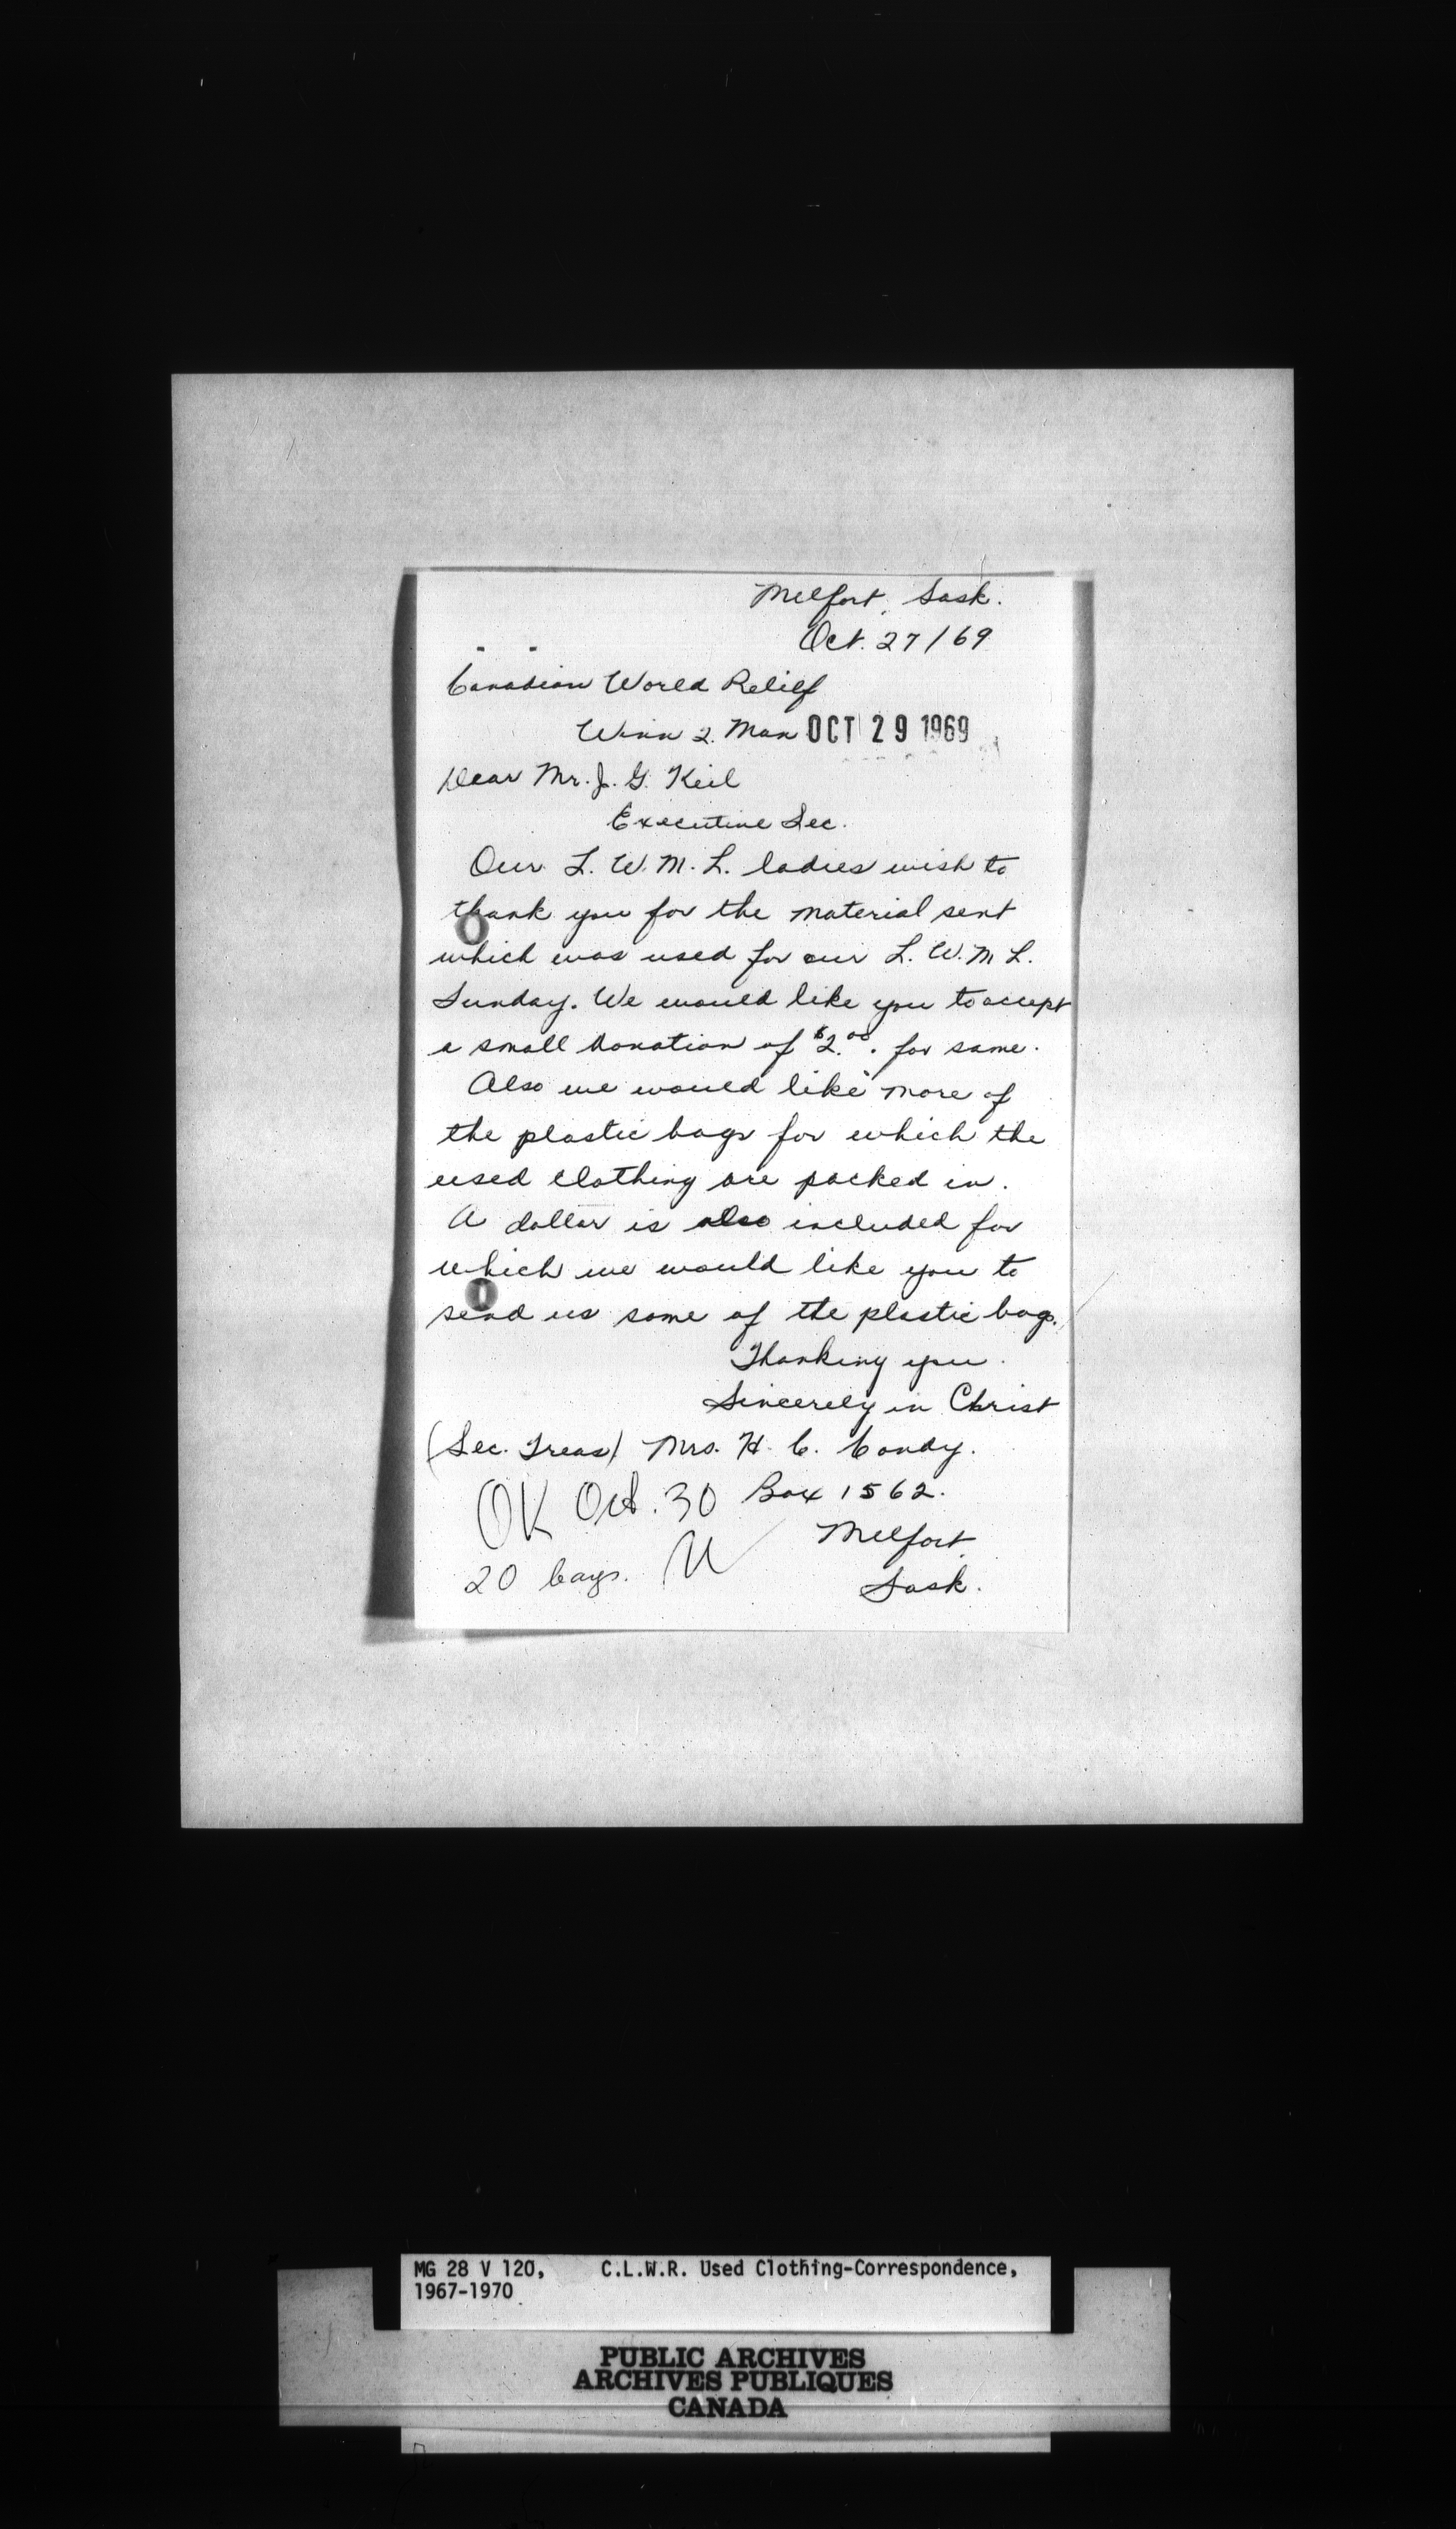 Melfort, Sask.
Oct. 27/69
Canadian World Relief
Winn 2. Man OCT 29 1969
Dear Mr. J. G. Keil
Executive Sec.
Our L. W. M. L. ladies wish to
thank you for the material sent
which was used for our L. W. M L.
Sunday. We would like you to accept
a small donation of $2.00. for same.
Also we would like more of
the plastic bags for which the
used clothing are packed in.
A dollar is also included for
which we would like you to
send us some of the plastic bags.
Thanking you.
Sincerely in Christ
(Sec. Treas) Mrs. H. C.
OK Oct. 30 Box 1562.
Melfort
20 bags.
Sask.
MG 28 V 120, C.L.W.R. Used Clothing-Correspondence,
1967-1970
PUBLIC ARCHIVES
ARCHIVES PUBLIQUES
CANADA